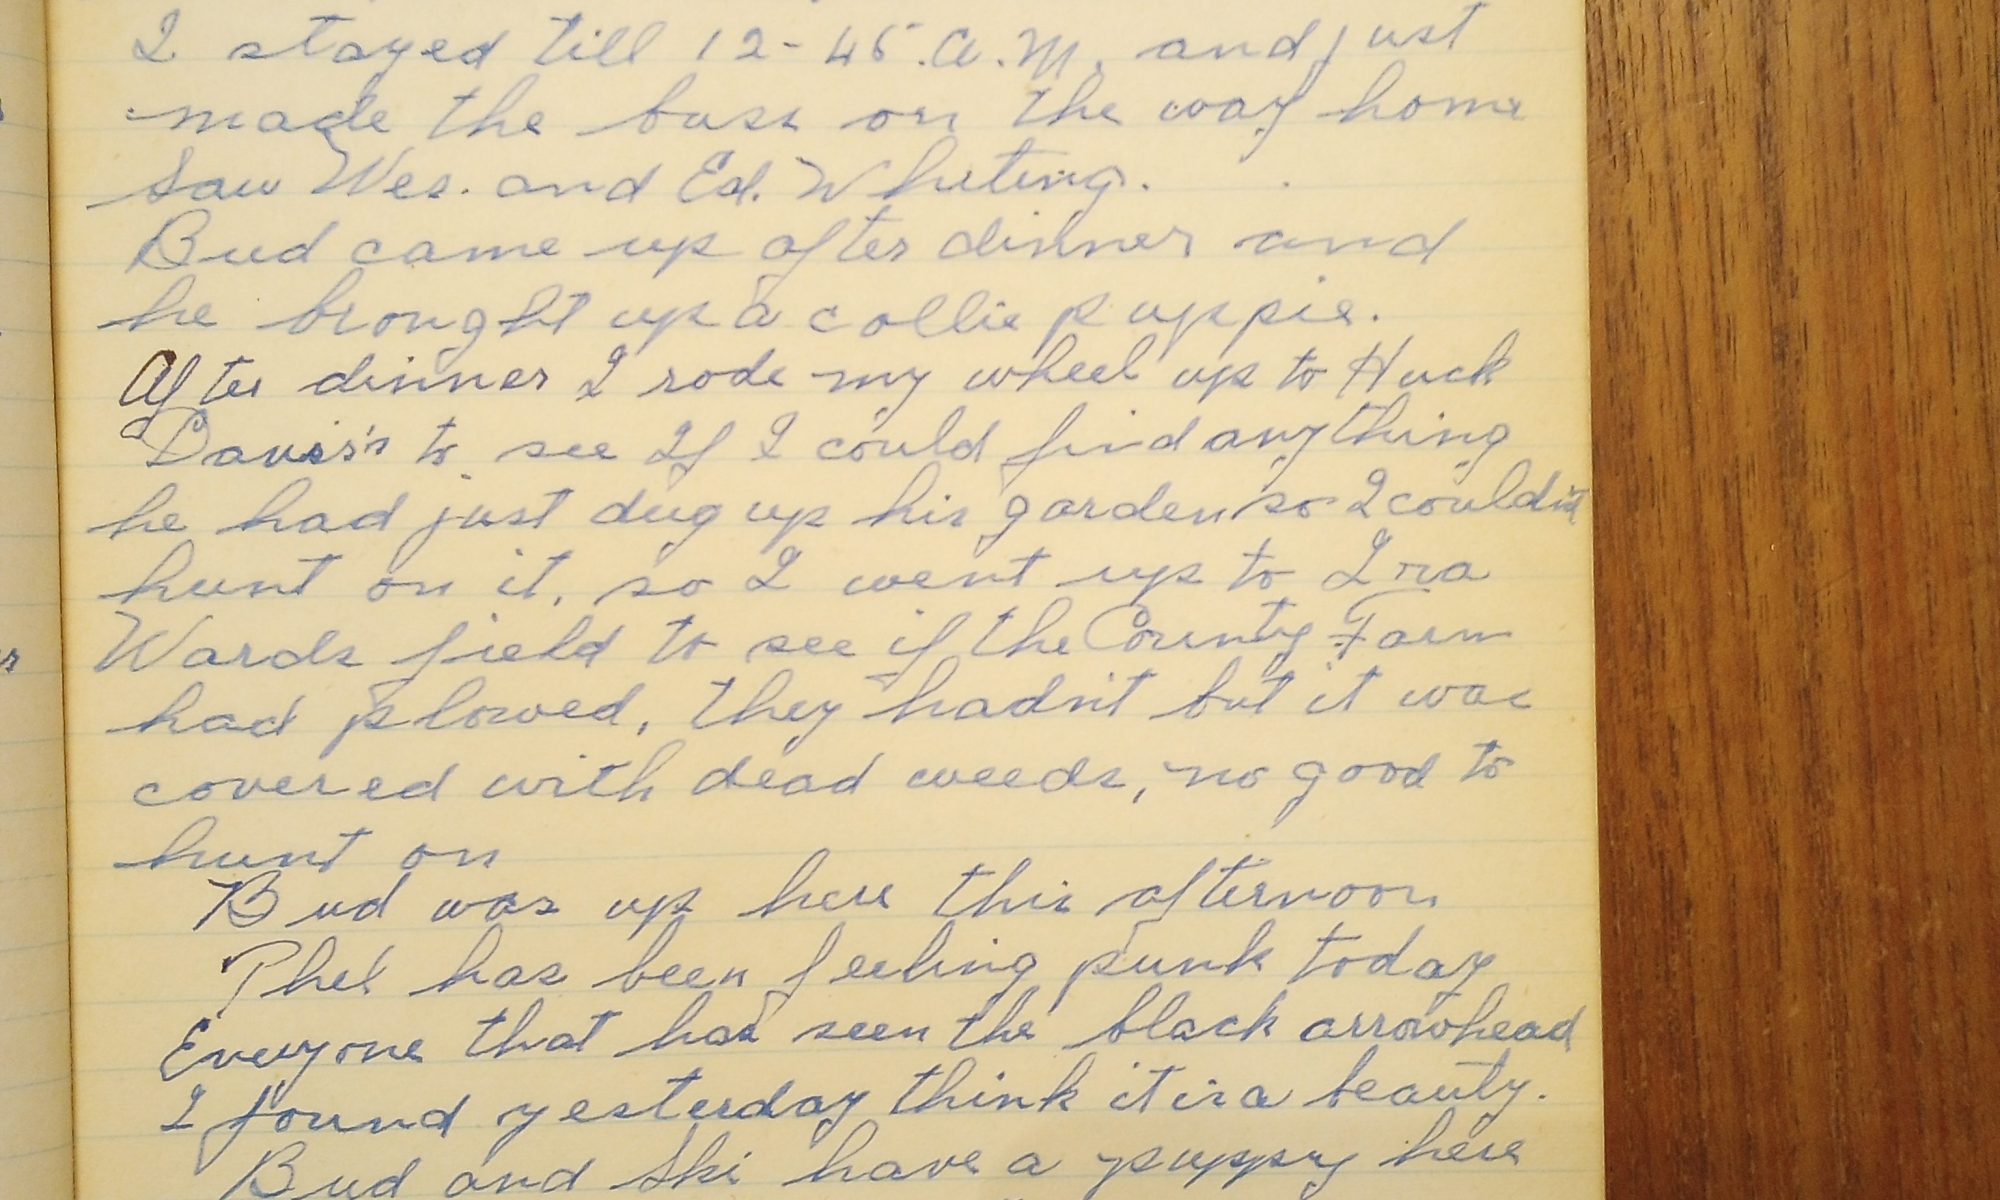 I stayed till 12-45.A.M. and just
made the buss on the way home
Saw Wes. and Ed. Whiting.
Bud came up after dinner and
he brought up a collie puppie.
After dinner I rode my wheel up to Huck
Davis's to see If I could find anything
he had just dug up his garden so I couldn't
hunt on it, so I went up to Ira
Wards field to see if the County Farm
had plowed, they hadn't but it was
covered with dead weeds, no good to
hunt on
Bud was up here this afternoon
Phel has been feeling punk today
Everyone that has seen the black arrowhead
I found yesterday think it is a beauty.
Bud and Ski have a puppy here